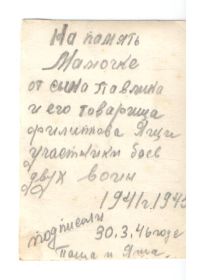 На память
Мамочке
от сына Павлика
и его товарища
Филиппова Яши
участники боев
двух воин
1941г. 1945
подписали
30.3.46 года
Паша и Яша.